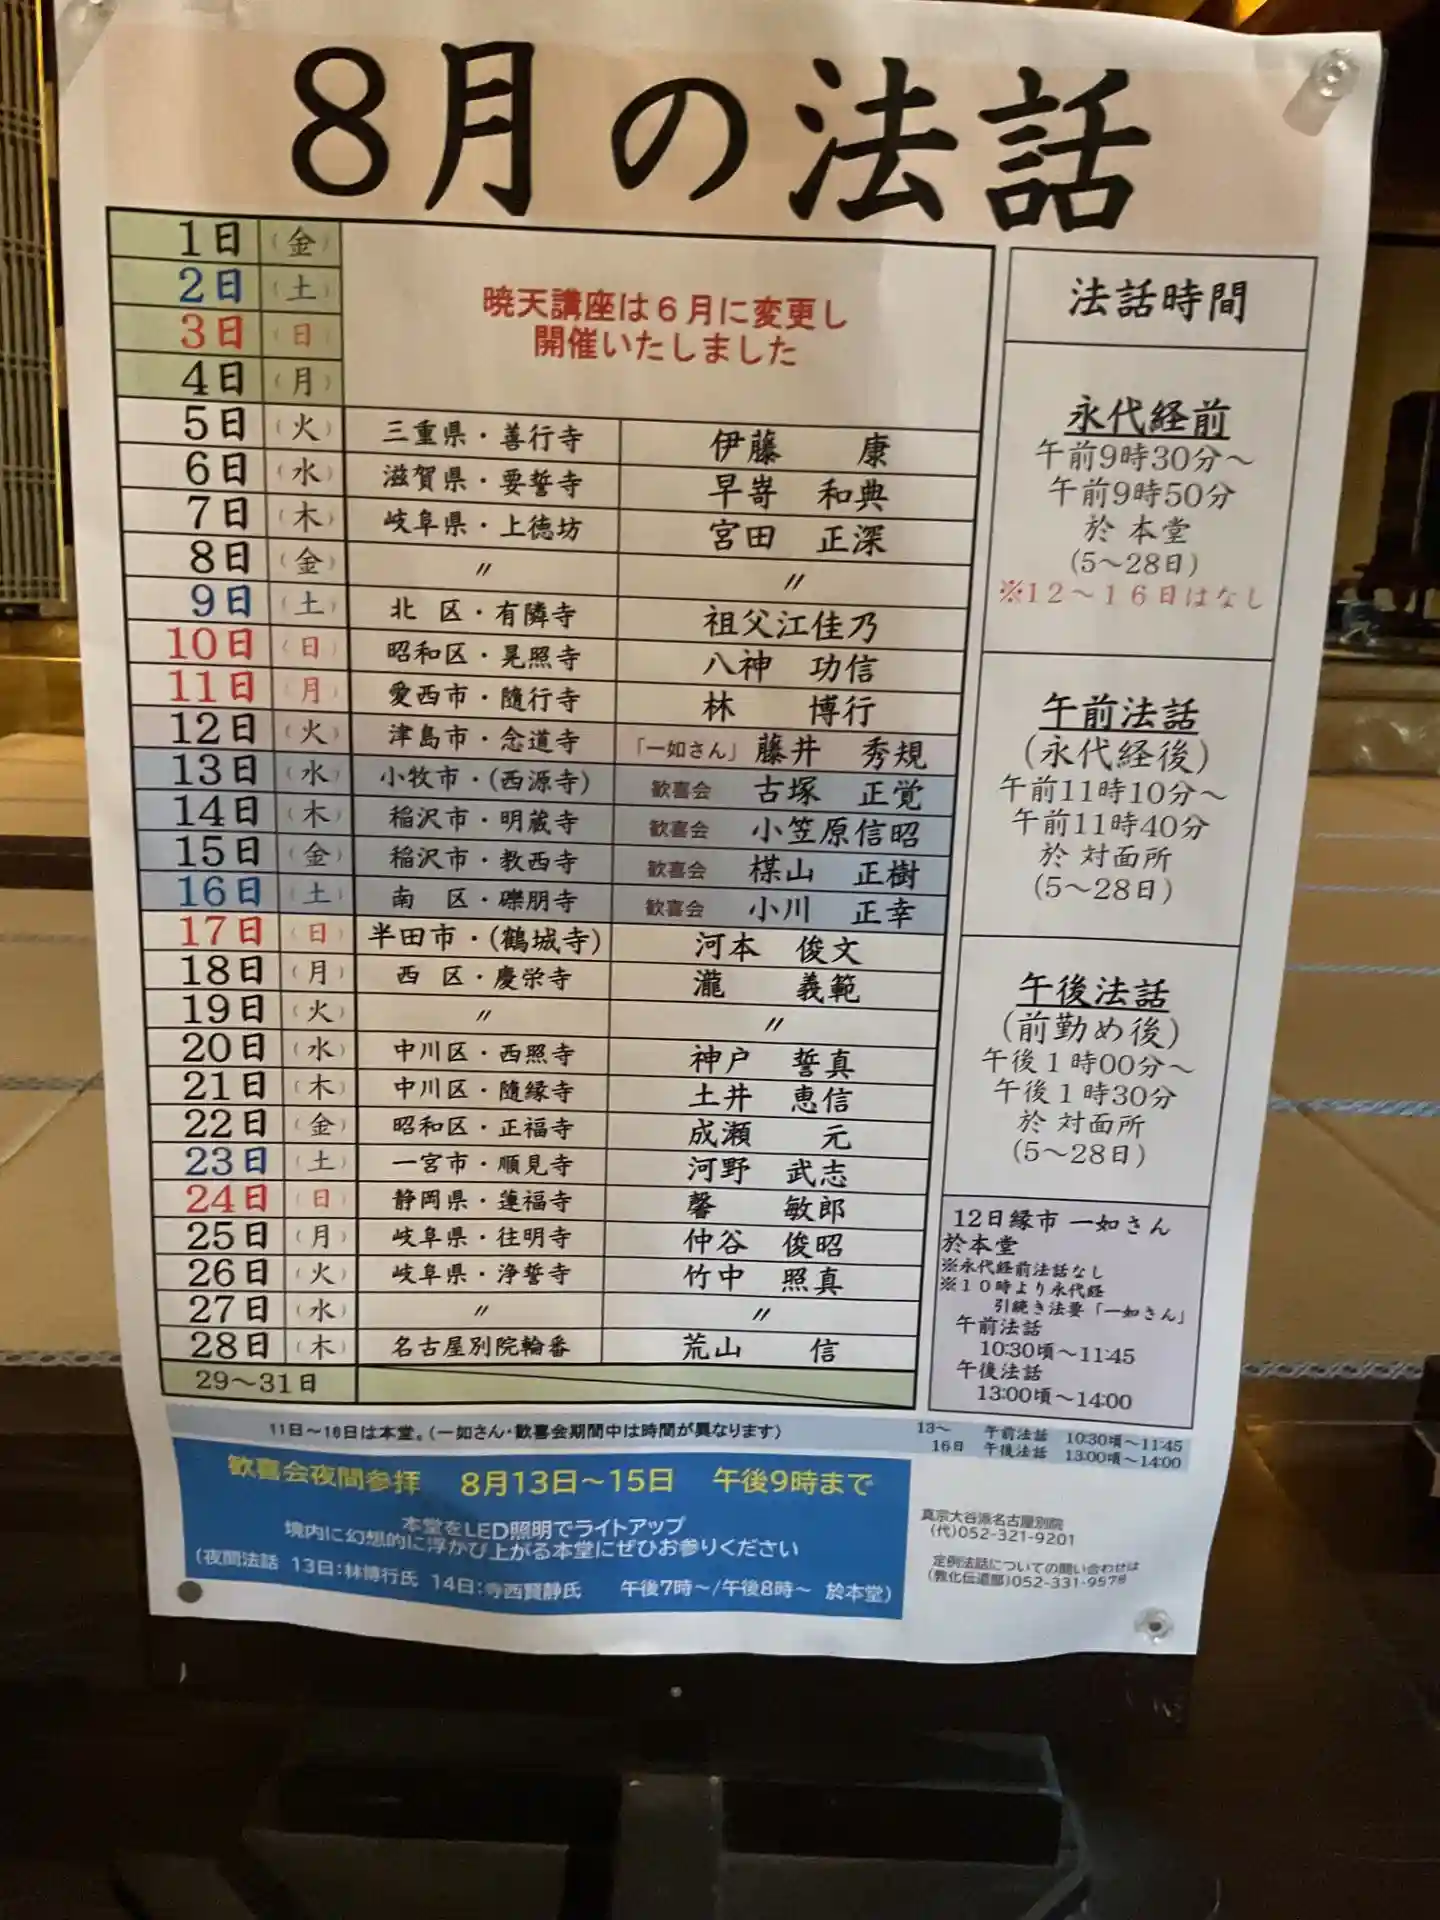 8月の法話
1日 (金)
2日 (土)
3日 (日)
4日 (月)
暁天講座は6月に変更し
開催いたしました
5日 (火) 三重県・善行寺 伊藤 康
6日 (水) 滋賀県・要誓寺 早嵜 和典
7日 (木) 岐阜県・上徳坊 宮田 正深
8日 (金) 〃 〃
9日 (土) 北 区・有隣寺 祖父江佳乃
10日 (日) 昭和区・晃照寺 八神 功信
11日 (月) 愛西市・隨行寺 林 博行
12日 (火) 津島市・念道寺 「一如さん」 藤井 秀規
13日 (水) 小牧市・(西源寺) 歓喜会 古塚 正覚
14日 (木) 稲沢市・明蔵寺 歓喜会 小笠原信昭
15日 (金) 稲沢市・教西寺 歓喜会 楳山 正樹
16日 (土) 南 区・礫朋寺 歓喜会 小川 正幸
17日 (日) 半田市・(鶴城寺) 河本 俊文
18日 (月) 西 区・慶栄寺 瀧 義範
19日 (火) 〃 〃
20日 (水) 中川区・西照寺 神戸 誓真
21日 (木) 中川区・隨縁寺 土井 恵信
22日 (金) 昭和区・正福寺 成瀬 元
23日 (土) 一宮市・順見寺 河野 武志
24日 (日) 静岡県・蓮福寺 馨 敏郎
25日 (月) 岐阜県・往明寺 仲谷 俊昭
26日 (火) 岐阜県・浄誓寺 竹中 照真
27日 (水) 〃 〃
28日 (木) 名古屋別院輪番 荒山 信
29～31日
法話時間
永代経前
午前9時30分～
午前9時50分
於 本堂
(5～28日)
※12～16日はなし
午前法話
(永代経後)
午前11時10分～
午前11時40分
於 対面所
(5～28日)
午後法話
(前勤め後)
午後1時00分～
午後1時30分
於 対面所
(5～28日)
12日縁市 一如さん
於本堂
※永代経前法話なし
※10時より永代経
引続き法要「一如さん」
午前法話
10:30頃～11:45
午後法話
13:00頃～14:00
11日～16日は本堂。(一如さん・歓喜会期間中は時間が異なります)
13～ 午前法話 10:30頃～11:45
16日 午後法話 13:00頃～14:00
歓喜会夜間参拝 8月13日～15日 午後9時まで
本堂をLED照明でライトアップ
境内に幻想的に浮かび上がる本堂にぜひお参りください
(夜間法話 13日:林博行氏 14日:寺西賢静氏 午後7時～/午後8時～ 於本堂)
真宗大谷派名古屋別院
(代)052-321-9201
定例法話についての問い合わせは
(教化伝道部)052-331-9578